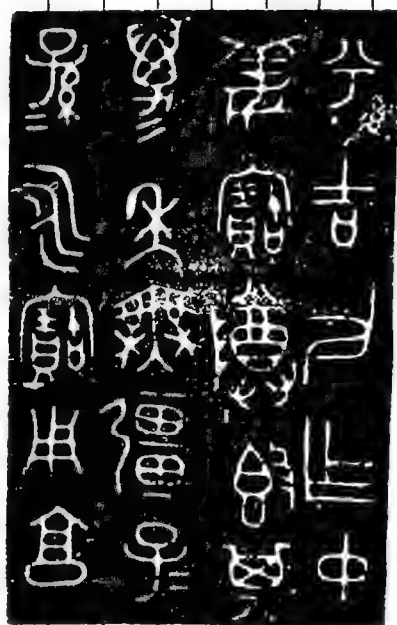 兮吉父乍中
姜寶尊𣪘其
萬年無彊子=
孫=永寶用享